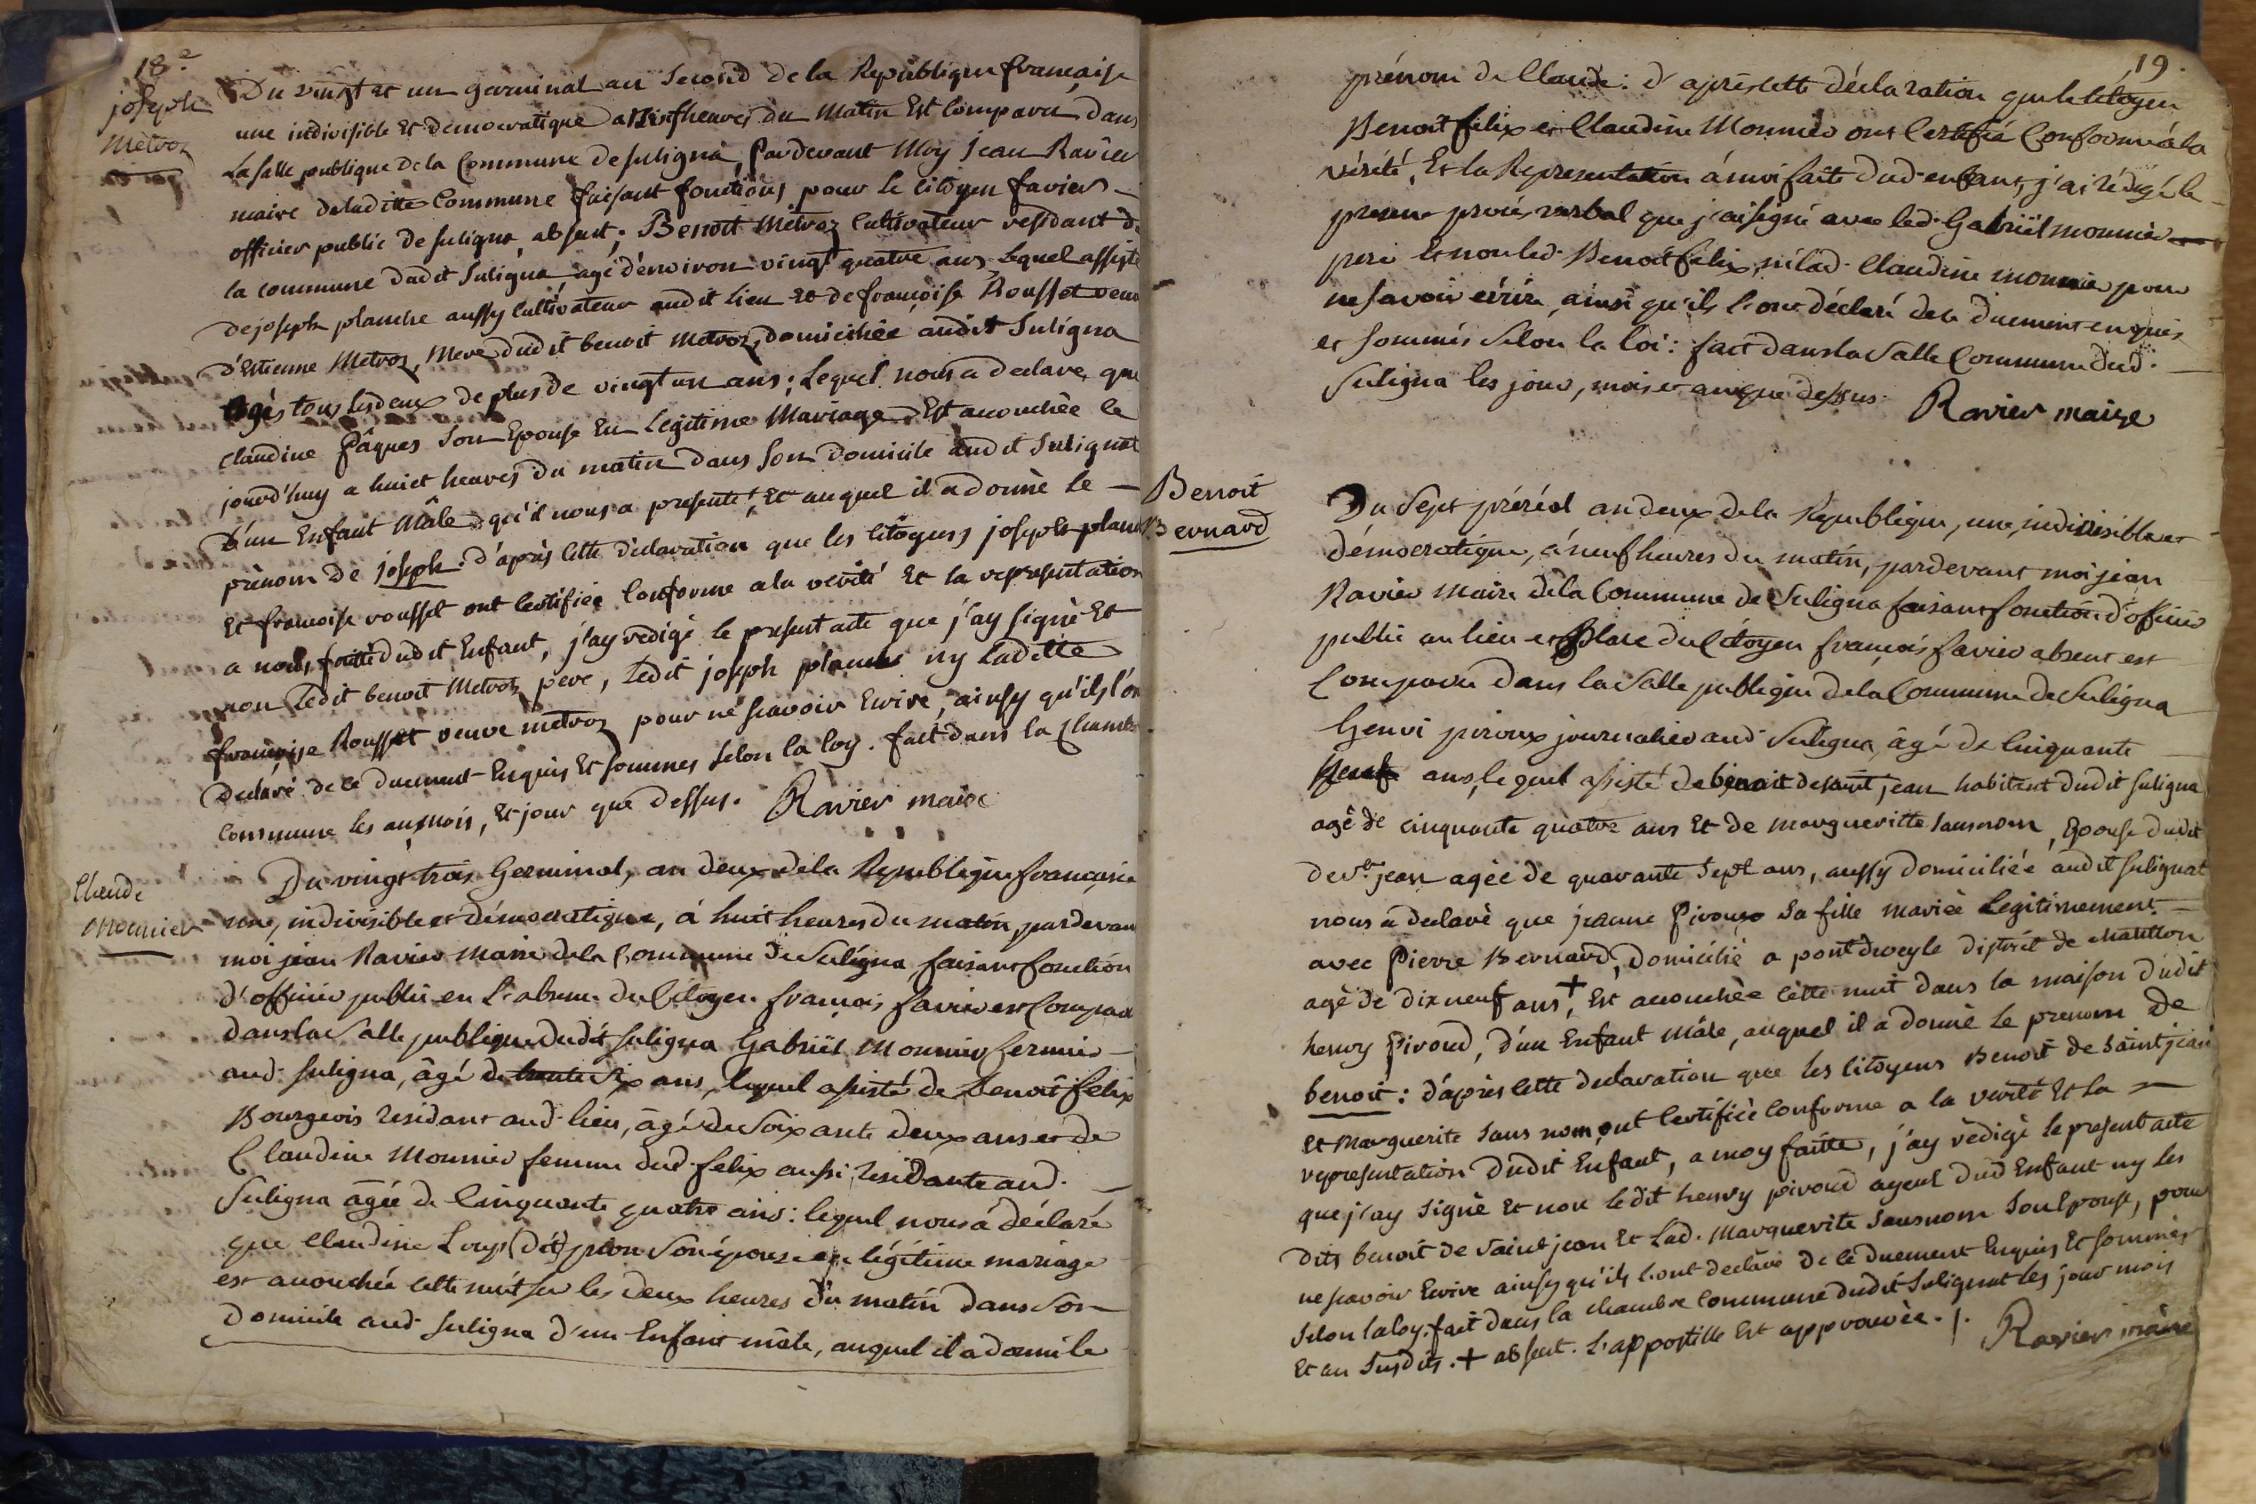 18.e
joseph
Metroz
Du vingt et un germinal an second de la Republique francaise
une indivisible Et democratique a neuf heures du matin Est Comparu dans
La salle publique de la Commune de suligna, Pardevant Moy Jean Ravier
maire deladitte Commune faisant fonctions pour le citoyen favier
officier public de suligna absent; Benoit Metroz Cultivateur residant d
la commune dudit Suligna agé d'environ vingt quatre ans Lequel assisté
de joseph planche aussy Cultivateur audit Lieu Et de françoise Rousset veuv
d'Estienne Metroz, Mere dudit benoit Metroz, domiciliée audit Suligna
agés tous lesdeux de plus de vingt un ans; Lequel nous a declaré que
claudine Pâques son Epouse En Legitime Mariage Est acouchée le
jourd'huy a huict heures du matin dans son domicile audit Sulignat
d'un Enfant Mâle qu'il nous a presenté, Et auquel il a donné le
prénom de joseph. d'après cette déclaration que les citoyens joseph planch
Et francoise rousset ont Certifiée Conforme a la verité Et la representation
a nous faitte dudit Enfant, j'ay redigé le present acte que j'ay signé Et
non Ledit benoit Metroz pere, Ledit joseph planche ny Laditte
françoise Rousset veuve metroz pour ne scavoir Ecrire, ainsy qu'ils l'on
declaré de ce duement Enquis Et sommes selon la loy. fait dans la Chambr
commune les an, mois, Et jour que dessus. Ravier maire
Claude
Mounier
Du vingt trois Germinal, an deux dela Republique francaise
une, indivisible et démocratique, á huit heures du matin, pardevan
moi jean Ravier Maire dela Commune de Suligna faisant fonction
d'officier public en L'absence du Citoyen françois favier est Comparu
dans la Salle publique dudit Suligna Gabriël Mounier fermier
aud. Suligna, âgé de trente Six ans, lequel assisté de Benoit félix
Bourgeois residant aud. lieu, âgé de Soixante deux ans et de
Claudine Mounier femme dud. felix aussi residante aud.
Suligna âgée de Cinquante quatre ans: lequel nous á déclaré
que Claudine Loup (dit) pion Son épouse en légitime mariage
est acouchée cette nuit sur les deux heures du matin dans Son
Domicile aud. Suligna d'un Enfant mâle, auquel il a donné le
19.
prénom de Claude: d'après cette déclaration que le Citoyen
Benoit félix et Claudine Mounier ont Certifié Conforme á la
vérité, Et la Representation á moi faite dud. enfant, j'ai rédigé le
present procés verbal que j'ai signé avec led. Gabriël mounier
pere et non led. Benoit felix, ni lad. Claudine mounier pour
ne savoir écrire, ainsi qu'ils l'ont déclaré de ce duement enquis
et sommés Selon la loi: fait dans la Salle Commune dud.
Suligna les jour, mois et an que dessus. Ravier maire
Benoit
Bernard
Du Sept préréal an deux de la Republique, une, indivisible et
démocratique, á neuf heures du matin, pardevant moi jean
Ravier Maire de la Commune de Suligna faisant fonction d'officier
public au lieu et place du Citoyen françois favier absent est
Comparu dans la Salle publique de la Commune de Suligna
Henri piroux journalier aud. Suligna, âgé de Cinquante
neuf ans, lequel assisté de benoit de saint jean habitant dudit suligna
agé de cinquante quatre ans Et de margueritte sansnom, Epouse dudit
de st. jean agée de quarante sept ans, aussy domiciliée audit sulignat
nous a declaré que jeanne Piroux sa fille mariée Legitimement
avec Pierre Bernard, domicilié a pont de veyle district de chatillon
agé de dix neuf ans,+ Est acouchée cette nuit dans la maison dudit
henry Piroud, d'un Enfant mâle, auquel il a donné le prenom de
benoit: d'après cette declaration que les citoyens Benoit de saint jean
Et Marguerite sans nom, ont Certifiée Conforme a la verité Et la
representation dudit Enfant, a moy faitte, j'ay rédigé le present acte
que j'ay signé Et non ledit henry piroud ayeul dud Enfant ny les
dits benoit de saint jean Et Lad. Marguerite sansnom son Epouse, pour
ne scavoir Ecrire ainsy qu'ils l'ont declaré de ce duement Enquis Et sommés
selon la loy. fait dans la chambre commune dudit Sulignat les jour mois
Et an susdits. + absent. L'appostille Est approuvée. /. Ravier maire